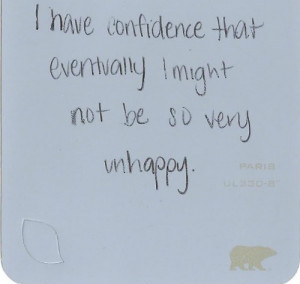 I have confidence that
eventually I might
not be so very
unhappy.
PARIS
UL220-8